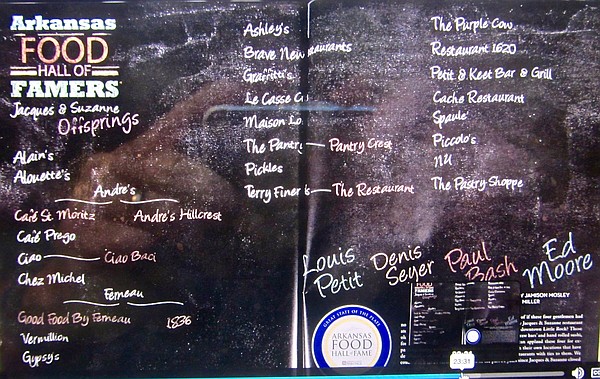 Arkansas
FOOD
HALL OF
FAMERS
Jacques & Suzanne
Offsprings
Alain's
Alouette's
Andre's
Café St. Moritz
Andre's Hillcrest
Café Prego
Ciao
Ciao Baci
Chez Michel
Ferneau
Good Food By Ferneau
1836
Vermillion
Gypsy's
Ashley's
Brave New
taurants
Graffitti's
Le Casse C
Maison Lo
The Pantry
Pantry Crest
Pickles
Terry Finer
The Restaurant
The Purple Cow
Restaurant 1620
Petit & Keet Bar & Grill
Cache Restaurant
Spaule
Piccolo's
NU
The Pastry Shoppe
Louis
Petit
Denis
Seyer
Paul
Bash
Ed
Moore
GREAT STATE OF THE PLATE
ARKANSAS
FOOD
HALL OF FAME
Y JAMISON MOSLEY
MILLER
of if these four gentlemen had
Jacques & Suzanne restaurant
23:31